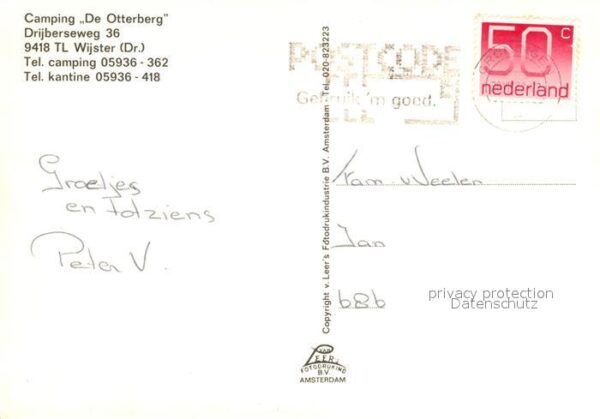 Camping „De Otterberg"
Drijberseweg 36
9418 TL Wijster (Dr.)
Tel. camping 05936 - 362
Tel. kantine 05936 - 418
Groetjes
en totziens
Peter V.
Copyright v. Leer's Fotodrukindustrie B.V. Amsterdam - Tel. 020-823223
VAN
LEER
FOTODRUKIND
B.V.
AMSTERDAM
POSTCODE
Gebruik 'm goed.
50 c
nederland
Fam. v Weelen
Jan
b8b
privacy protection
Datenschutz